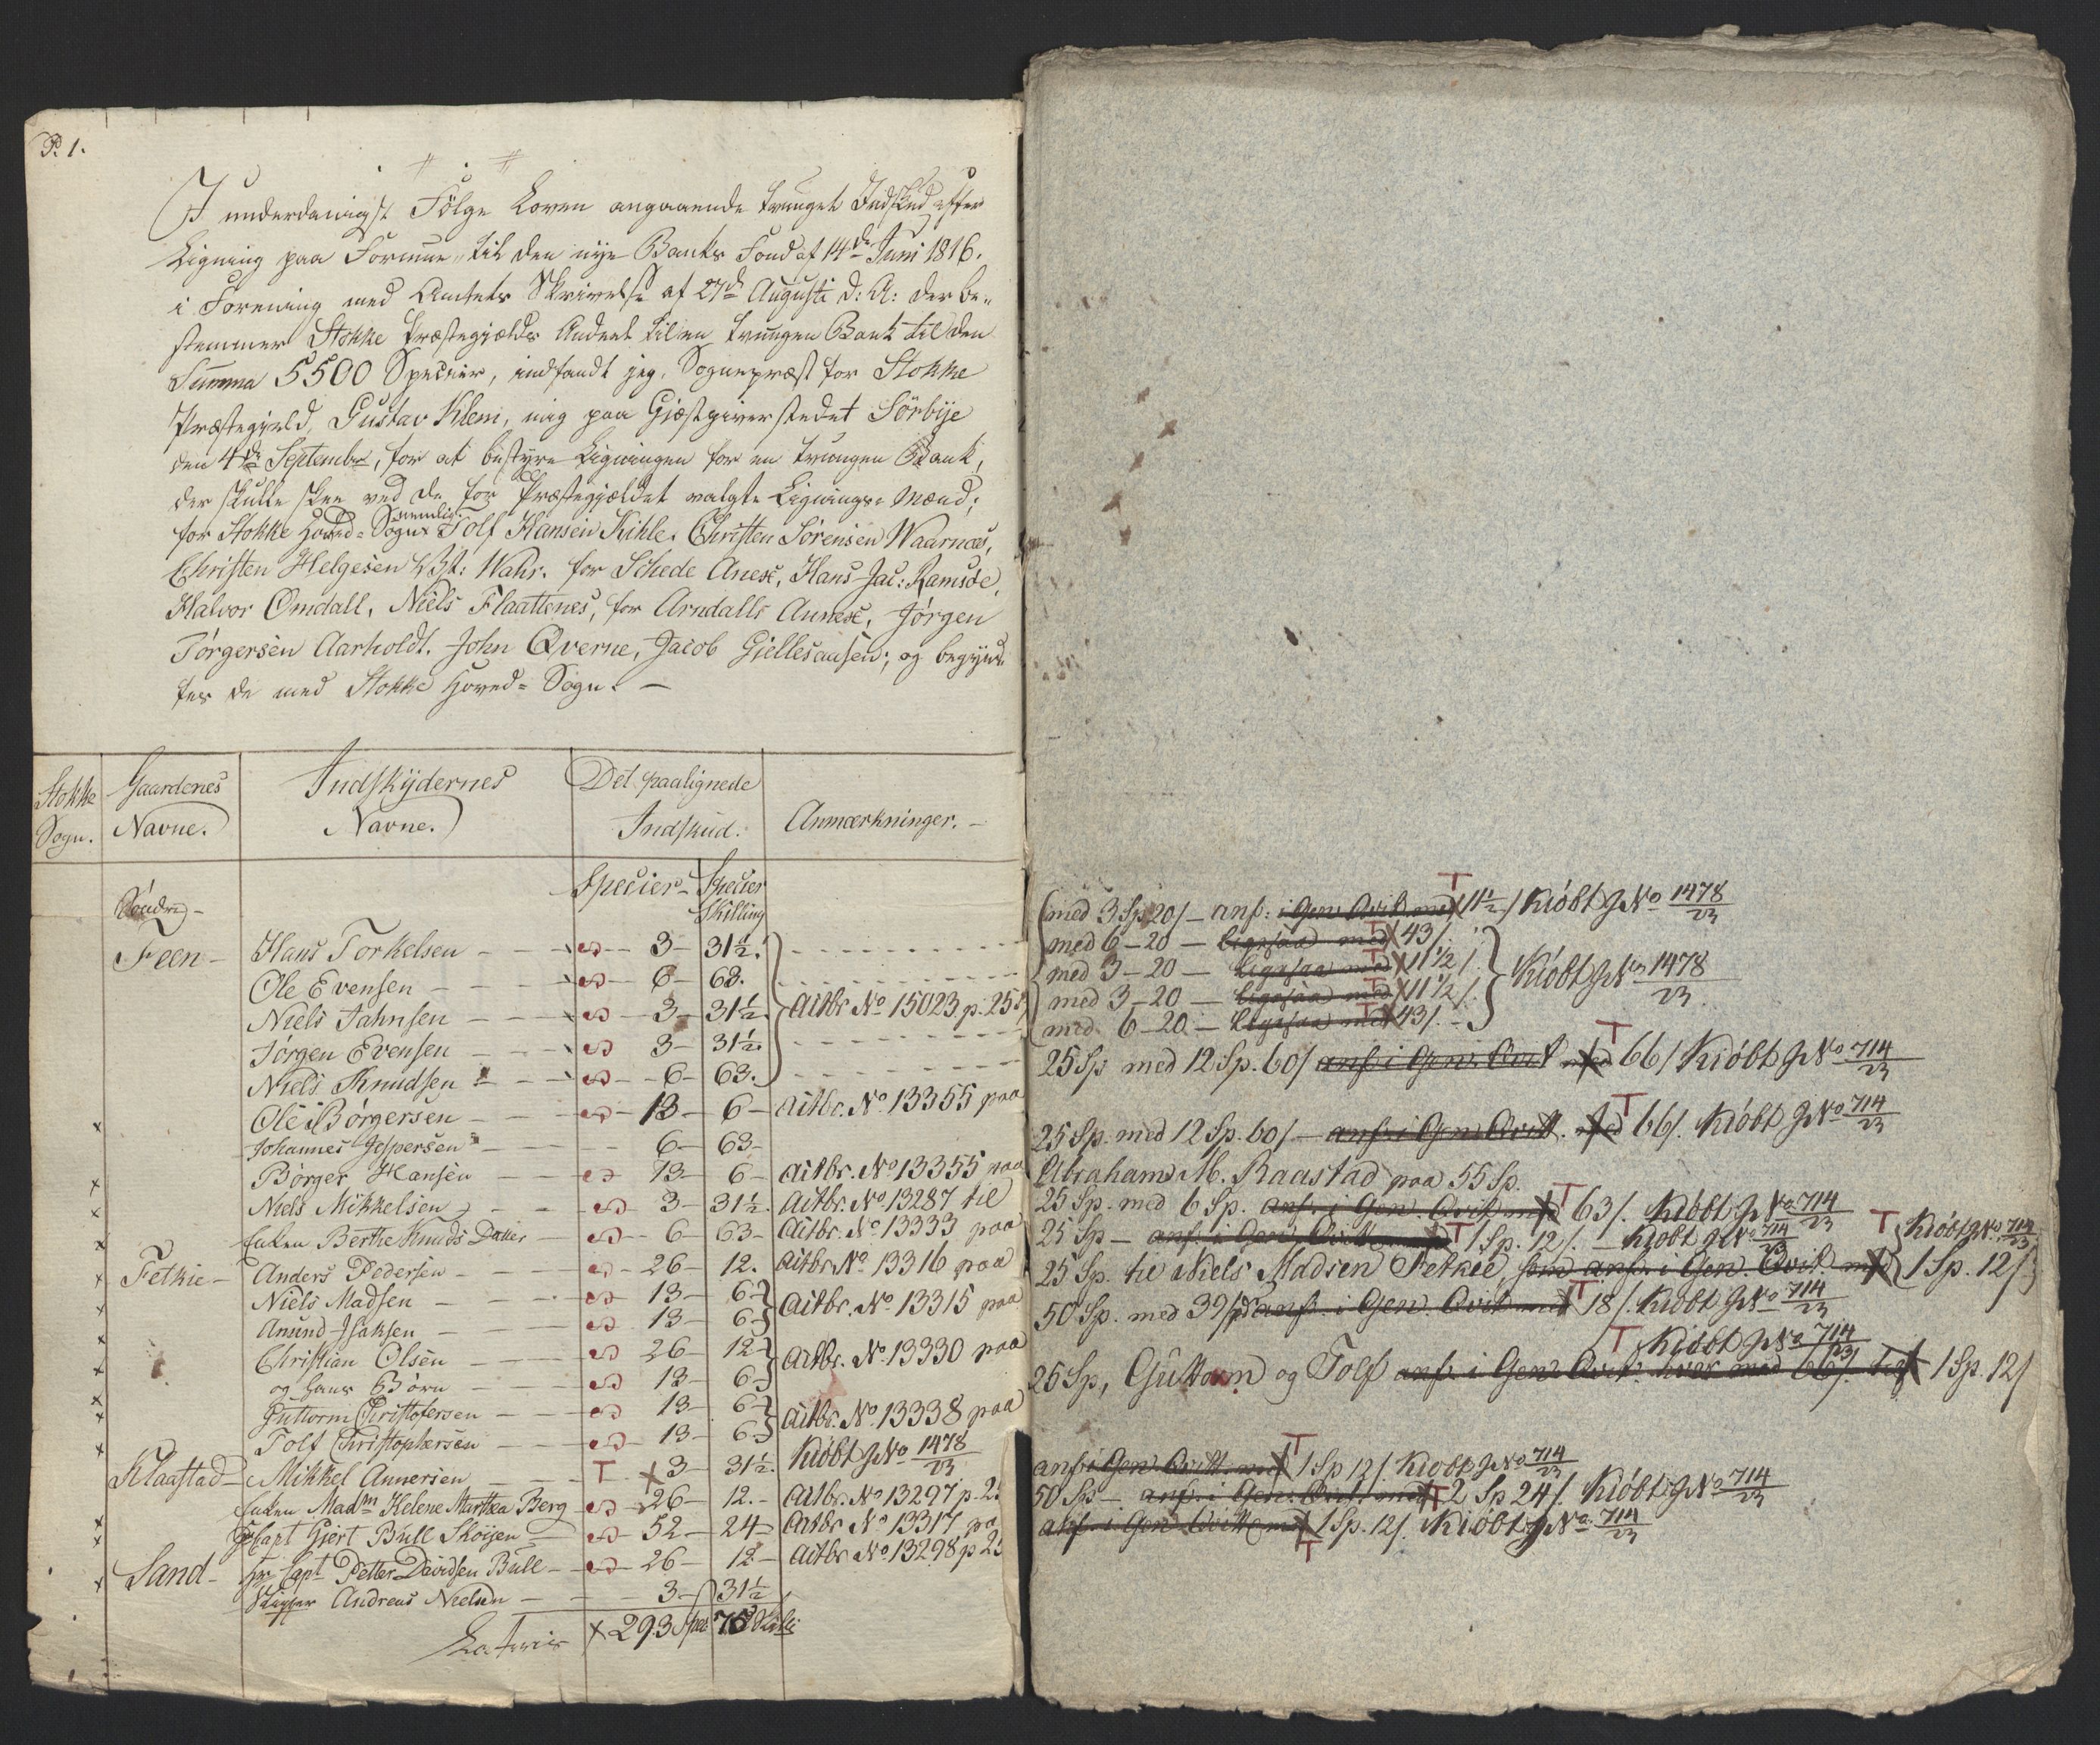 P. 1.
I underdanigst Følge Loven angaaende tvunget Indskud efter
Ligning paa Formue til den nye Banks Fond af 14de Juni 1816.
i Forening med Amtets Skrivelse af 27de Augusti d: A: der be-
stemmer Stokke Præstegjælds Andeel til en tvungen Bank til den
Summa 5500 Specier, indfandt jeg, Sognepræst for Stokke
Præstegjeld, Gustav Klem, mig paa Giæstgiverstedet Sörbÿe
den 4de September, for at bestyre Ligningen for en tvungen Bank,
der skulle skee ved de for Præstegjældet valgte Lignings-Mænd;
nemlig:
for Stokke Hoved-Sogn Tolf Hansen Kihle, Christen Sørensen Waarnæs,
Christen Helgesen Wahr. for Schede Anex, Hans Jac: Ramsøe,
Halvor Omdall, Niels Flaattenes, for Arndalls Annex, Jørgen
Jørgersen Aarholdt, John Qverne, Jacob Giellesaasen; og begyn-
tes de med Stokke Hoved-Sogn. —
Stokke Sogn. Gaardenes Navne. Indskÿdernes Navne. Det paalignede Indskud. Anmærkninger. —
Specier - Specier Skilling
Søndre -
Feen - Hans Torkelsen 3 - 31½.
Ole Evensen 6 - 63.
Niels Jahnsen 3 - 31½. Aitbr. No 15023. p. 25
Jørgen Evensen 3 - 31½.
Niels Knudsen 6 - 63.
Ole Børgersen 13 - 6 - Aitbr. No 13355 paa
Johannes Jespersen 6 - 63 -
Børger Hansen 13 - 6 - Aitbr. No 13355 paa
Niels Mikkelsen 3 - 31½. Aitbr. No 13287 til
Enken Berthe Knuds Datter 6 - 63 - Aitbr. No 13333 paa
Fetkie - Anders Pedersen 26 - 12. Aitbr. No 13316 paa
Niels Madsen 13 - 6
Anund Isaksen 13 - 6 Aitbr. No 13315 paa
Christian Olsen 26 - 12
og hans Børn 13 - 6 Aitbr. No 13330 paa
Guttorm Christofersen 13 - 6
Tolf Christophersen 13 - 6 Aitbr. No 13338 paa
Klaastad - Mikkel Annersen T x 3 - 31½. Kiøbt J No 1478/23
Enken Madm Helene Marthea Berg 26 - 12. - Aitbr. No 13297 p. 25
Capt Giert Bull Skoÿen 52 - 24 - Aitbr No 13317 pa
Sand - Hr Capt Petter Davidsen Bull 26 - 12 - Aitbr No 13298 p 25
Skipper Andreas Nielsen 3 - 31½
Lateris x 293 Spec 75 Skill
med 3 Sp 20/ - anf: i Gen. Qvit. med T 11½/ Kiøbt J No 1478/23
med 6 - 20 - ligesaa med 43/.
med 3 - 20 - ligesaa med 11½/. Kiøbt J No 1478/23
med 3 - 20 - ligesaa med 11½/.
med 6 - 20 - ligesaa med 43/. -
25 Sp med 12 Sp. 60/ anf. i Gen. Qvit med T 66/ Kiøbt J No 714/23
25 Sp. med 12 Sp. 60/ - anf. i Gen. Qvitt. med T 66/. Kiøbt J No 714/23
Abraham M. Raastad paa 55 Sp.
25 Sp. med 6 Sp. anf. i Gen. Qvit med T 63/. Kiøbt J No 714/23
25 Sp - anf. i Gen. Qvitt med T 1 Sp. 12/. - Kiøbt J No 714/23
25 Sp. til Niels Madsen Fetkie, som anf. i Gen. Qvit. med T 1 Sp. 12/ Kiøbt J No 714/23
50 Sp. med 39/ anf. i Gen. Qvit med T 18/. Kiøbt J No 714/23
T Kiøbt J No 714/23
25 Sp, Guttorm og Tolf anf. i Gen. Qvit. hver med 66/. 1 Sp. 12/
anf. i Gen. Qvitt. med T 1 Sp 12/. Kiøbt J No 714/23
50 Sp - anf. i Gen. Qvit. med T 2 Sp 24/. Kiøbt J No 714/23
anf. i Gen. Qvitt. med T 1 Sp. 12/. Kiøbt J No 714/23